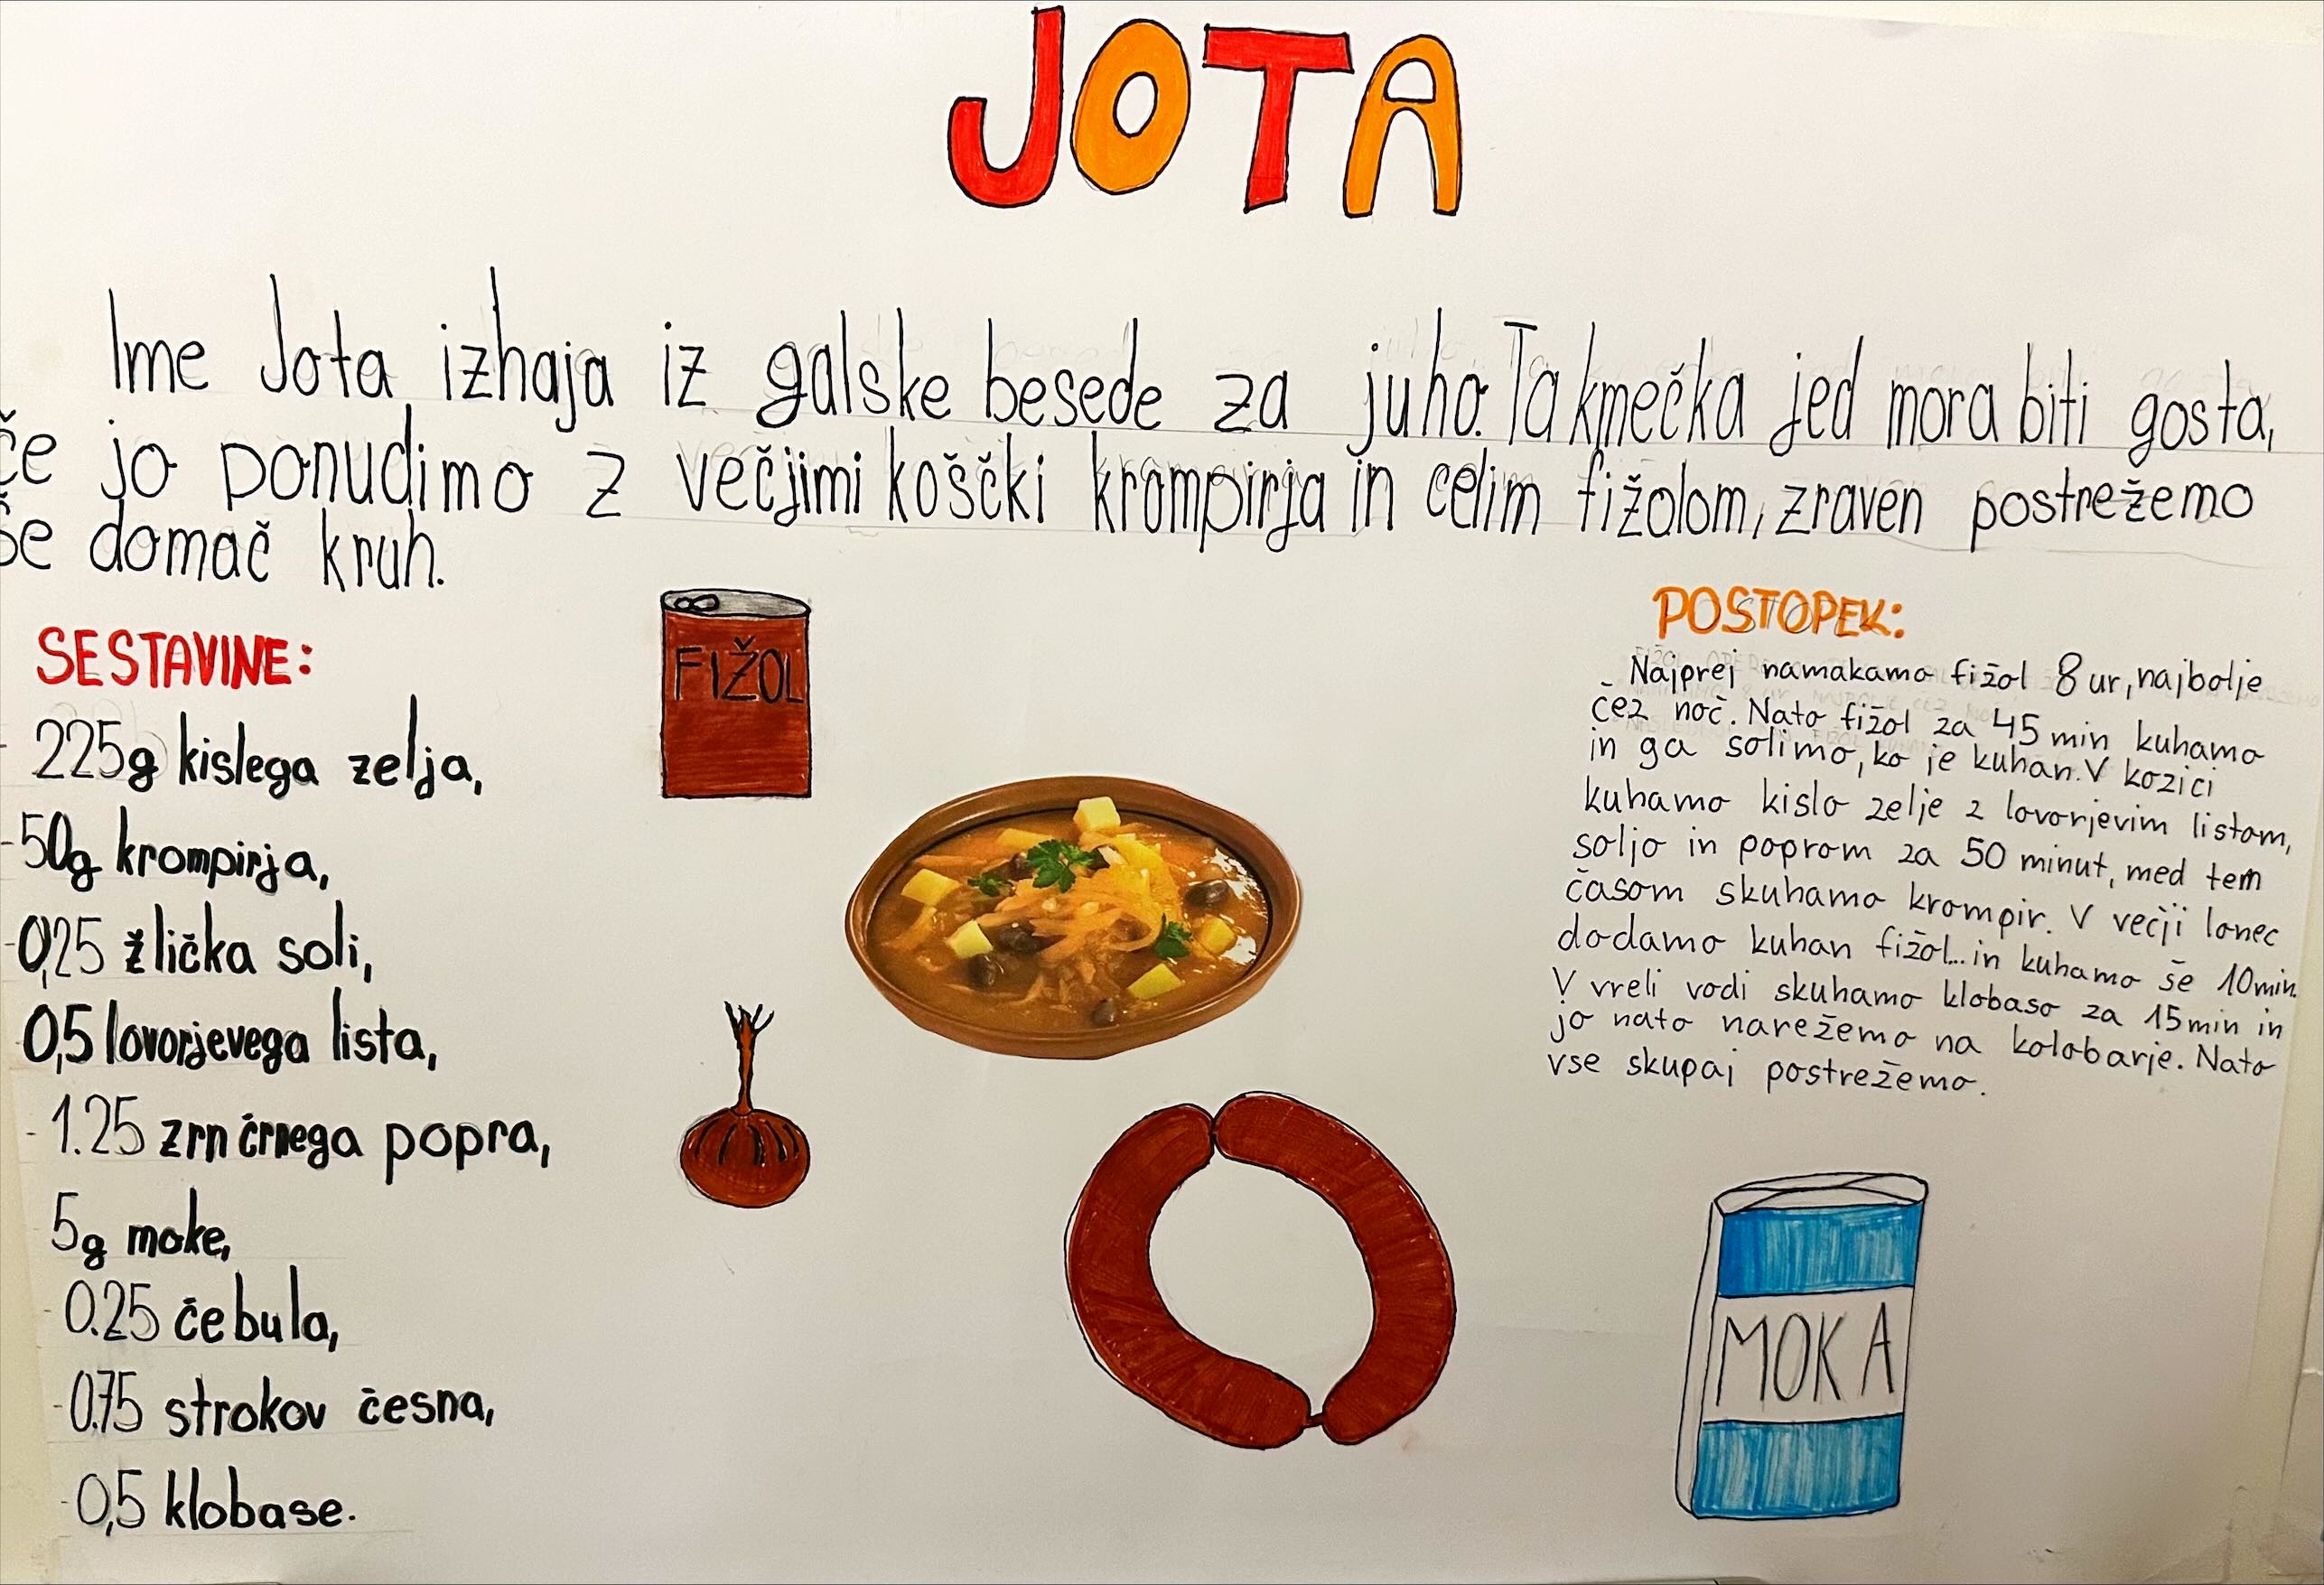 JOTA
Ime Jota izhaja iz galske besede za juho. Ta kmečka jed mora biti gosta,
če jo ponudimo z večjimi koščki krompirja in celim fižolom, zraven postrežemo
še domač kruh.
SESTAVINE:
- 225g kislega zelja,
- 50g krompirja,
- 0,25 žlička soli,
0,5 lovorjevega lista,
- 1.25 zrn črnega popra,
5g moke,
- 0.25 čebula,
- 0.75 strokov česna,
- 0,5 klobase.
FIŽOL
POSTOPEK:
Najprej namakamo fižol 8 ur, najbolje
čez noč. Nato fižol za 45 min kuhamo
in ga solimo, ko je kuhan. V kozici
kuhamo kislo zelje z lovorjevim listom,
soljo in poprom za 50 minut, med tem
časom skuhamo krompir. V večji lonec
dodamo kuhan fižol... in kuhamo še 10min.
V vreli vodi skuhamo klobaso za 15min in
jo nato narežemo na kolobarje. Nato
vse skupaj postrežemo.
MOKA